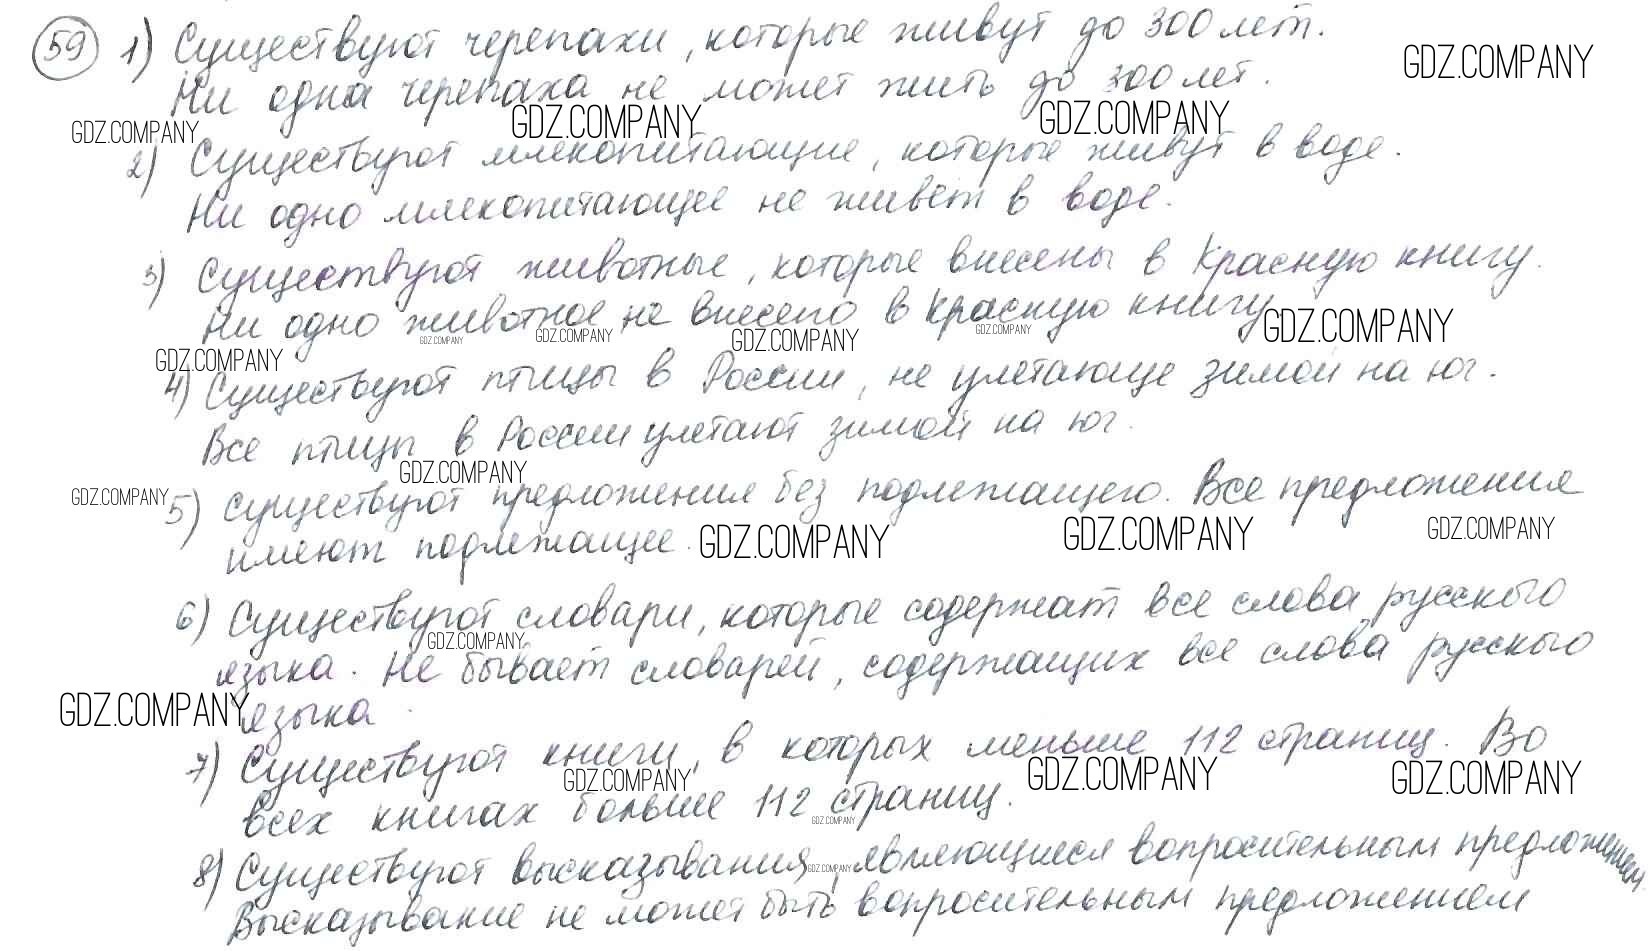 59 1) Существуют черепахи, которые живут до 300 лет.
GDZ.COMPANY
Ни одна черепаха не может жить до 300 лет.
GDZ.COMPANY GDZ.COMPANY GDZ.COMPANY
2) Существуют млекопитающие, которые живут в воде.
Ни одно млекопитающее не живёт в воде.
3) Существуют животные, которые внесены в Красную книгу.
Ни одно животное не внесено в Красную книгу
GDZ.COMPANY GDZ.COMPANY GDZ.COMPANY GDZ.COMPANY GDZ.COMPANY
GDZ.COMPANY
4) Существуют птицы в России, не улетающие зимой на юг.
Все птицы в России улетают зимой на юг.
GDZ.COMPANY GDZ.COMPANY
5) Существуют предложения без подлежащего. Все предложения
имеют подлежащее.
GDZ.COMPANY GDZ.COMPANY GDZ.COMPANY
6) Существуют словари, которые содержат все слова русского
GDZ.COMPANY
языка. Не бывает словарей, содержащих все слова русского
GDZ.COMPANY
языка.
7) Существуют книги, в которых меньше 112 страниц. Во
GDZ.COMPANY GDZ.COMPANY GDZ.COMPANY
всех книгах больше 112 страниц.
GDZ.COMPANY
8) Существуют высказывания, являющиеся вопросительным предложением.
GDZ.COMPANY
Высказывание не может быть вопросительным предложением